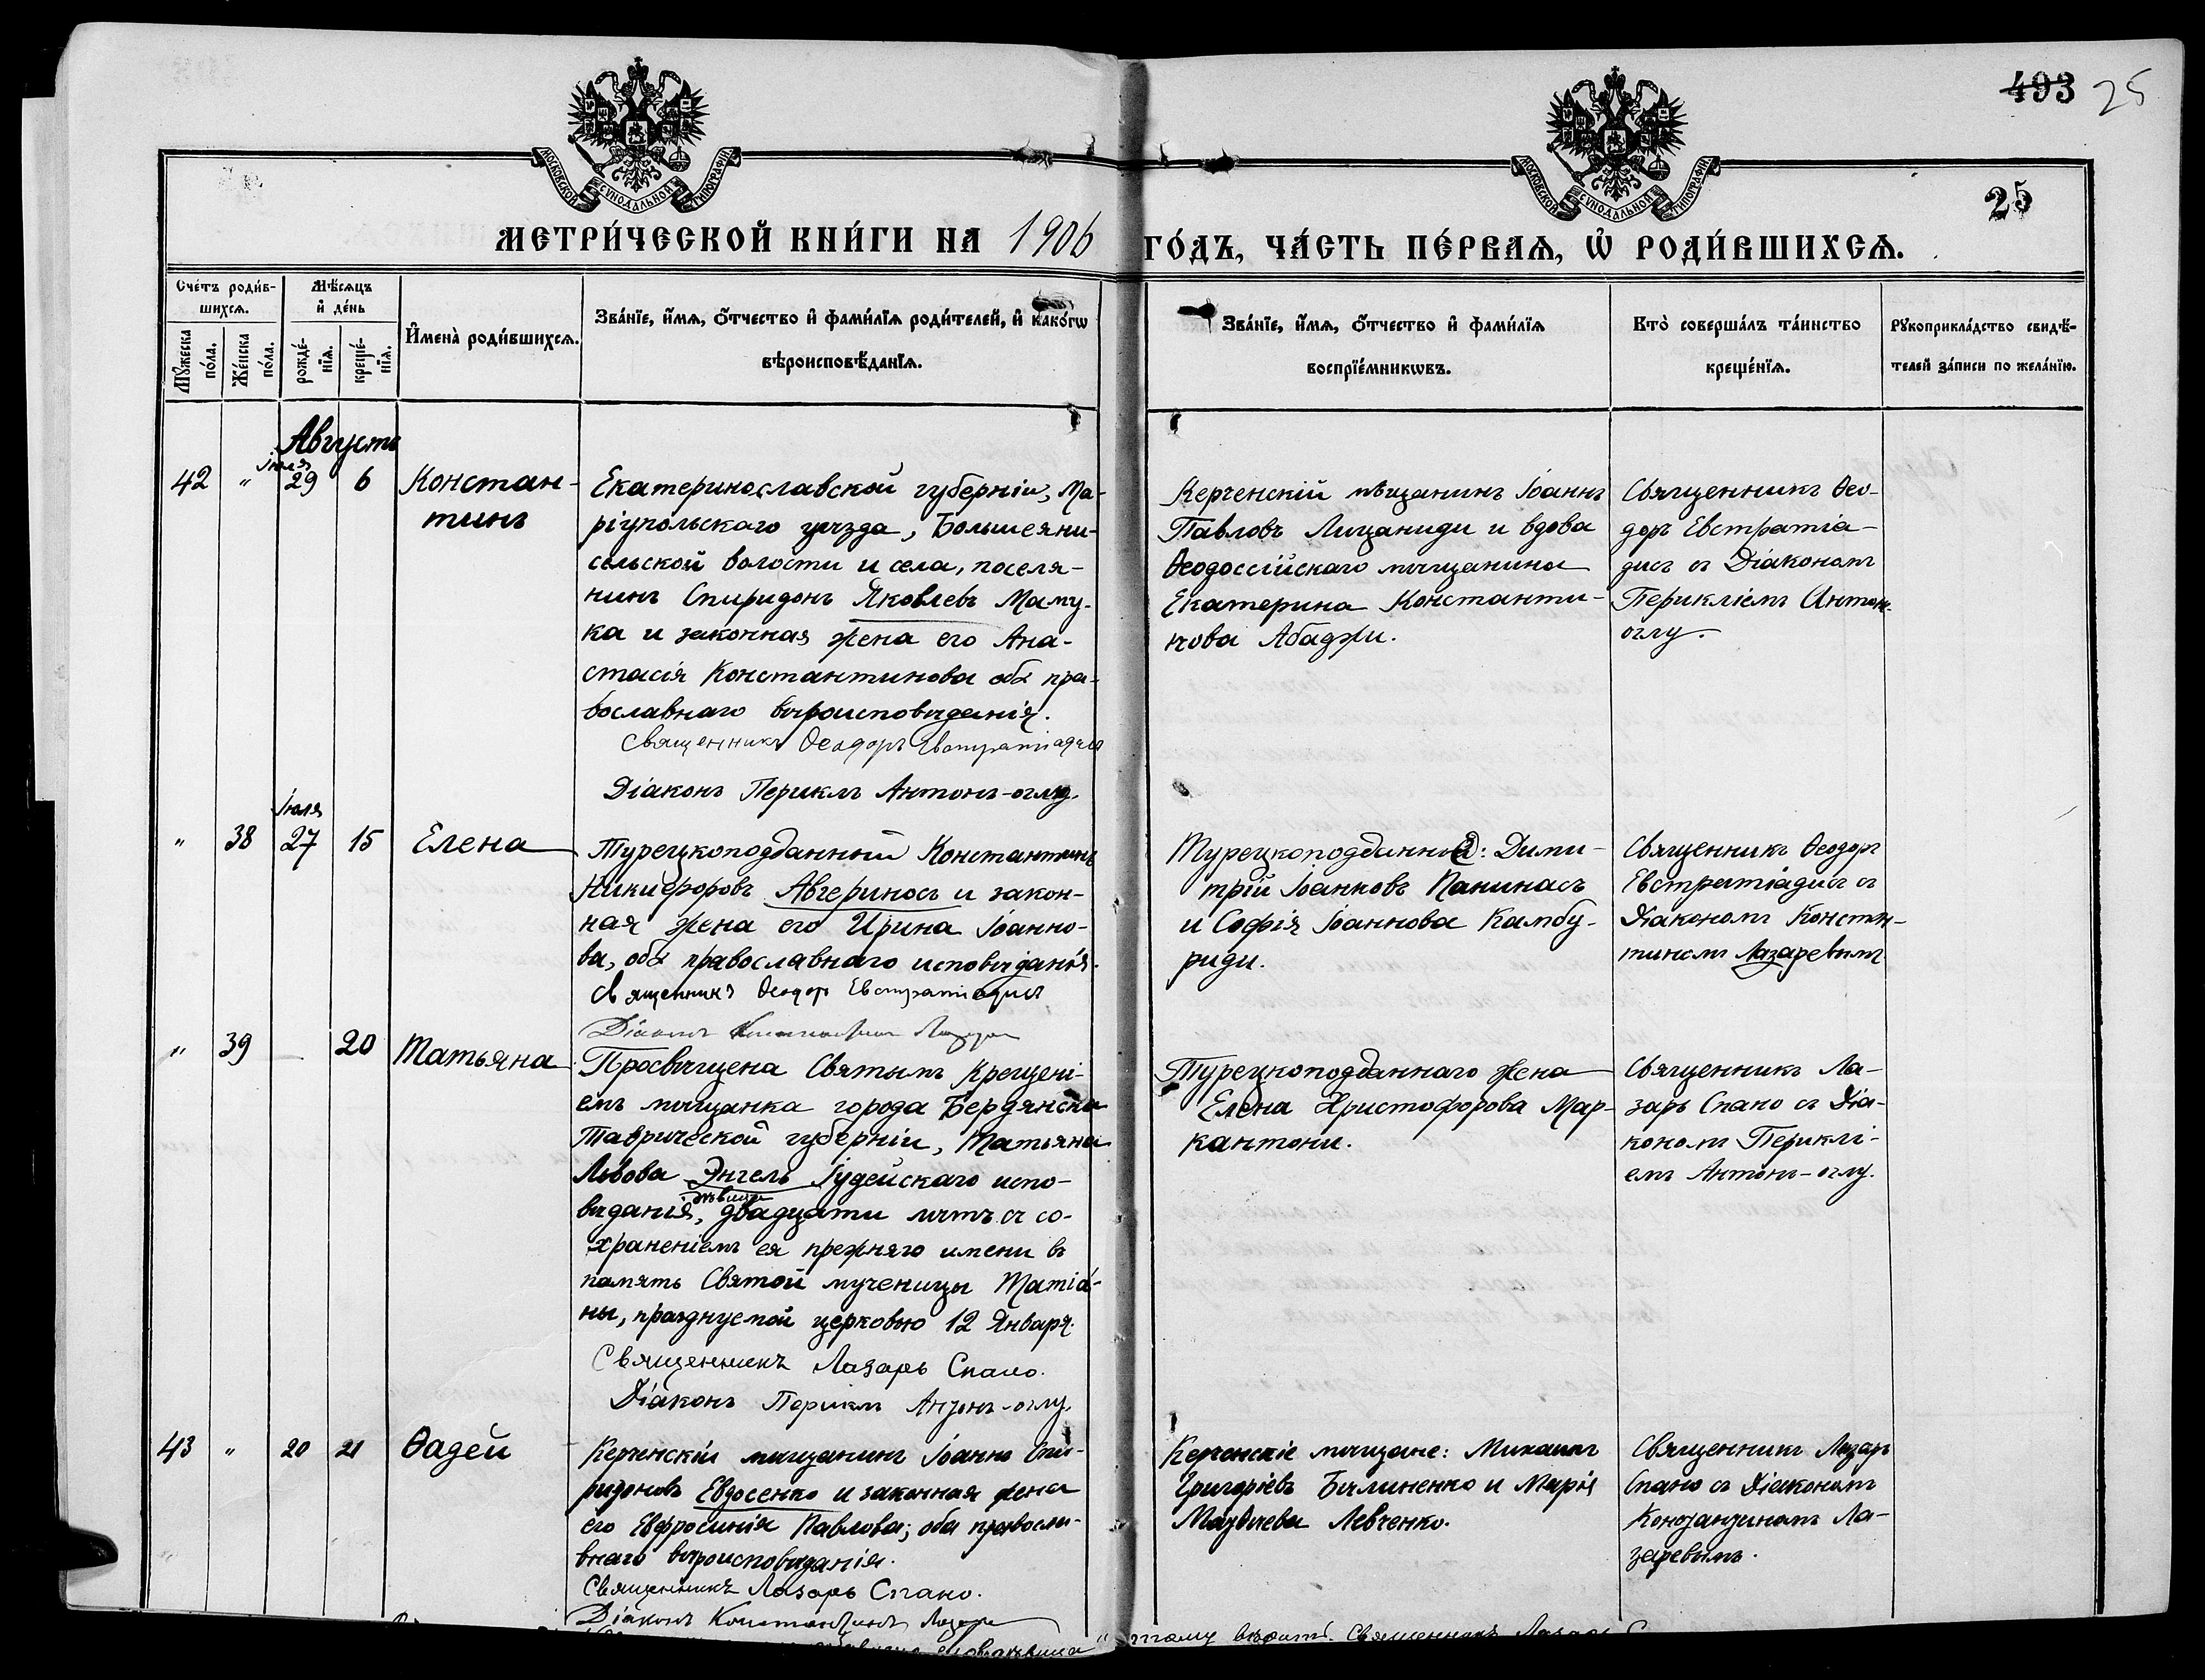 493 25
25
МОСКОВСКОЙ СУНОДАЛЬНОЙ ТИПОГРАФIИ
МОСКОВСКОЙ СУНОДАЛЬНОЙ ТИПОГРАФIИ
МЕТРИ́ЧЕСКОЙ КНИ́ГИ НА 1906 ГО́ДЪ, ЧА́СТЬ ПЕ́РВАѦ, Ѡ҆ РОДИ́ВШИХСѦ.
Сче́тъ роди́в-
шихсѧ.
Мꙋ́жеска по́ла.
Же́нска по́ла.
Мѣ́сѧцъ
и҆ де́нь
рожде́-
нїѧ.
креще́-
нїѧ.
И҆мена̀ роди́вшихсѧ.
Зва́нїе, и҆́мѧ, ѻ҆́тчество и҆ фами́лїѧ роди́телей, и҆ како́гѡ
вѣроисповѣ́данїѧ.
Зва́нїе, и҆́мѧ, ѻ҆́тчество и҆ фами́лїѧ
воспрїе́мникѡвъ.
Кто̀ соверша́лъ та́инство
креще́нїѧ.
Рꙋкоприкла́дство свидѣ́-
телей за́писи по жела́нїю.
Августъ
42 " Іюля 29 6 Констан-
тинъ
Екатеринославской губерніи, Ма-
ріупольскаго уѣзда, Большеяни-
сельской волости и села, поселя-
нинъ Спиридонъ Яковлевъ Маму-
ка и законная жена его Ана-
стасія Константинова оба пра-
вославнаго вѣроисповѣданія.
Священникъ Ѳеодоръ Евстратіадисъ
Діаконъ Периклъ Антонъ-оглу.
Керченскій мѣщанинъ Іоаннъ
Павловъ Лицаниди и вдова
Ѳеодоссійскаго мѣщанина
Екатерина Константи-
нова Абаджи.
Священникъ Ѳео-
доръ Евстратіа-
дисъ съ Діакономъ
Перикліемъ Антон-
оглу.
" 38 Іюля 27 15 Елена
Турецкоподданный Константинъ
Никифоровъ Авгериносъ и закон-
ная жена его Ирина Іоанно-
ва, оба православнаго исповѣданія.
Священникъ Ѳеодоръ Евстратіадисъ
Діаконъ Константинъ Лазари
Турецкоподданные: Дими-
трій Іоанновъ Панинасъ
и Софія Іоаннова Камбу-
риди.
Священникъ Ѳеодоръ
Евстратіадисъ съ
Діакономъ Констан-
тиномъ Лазаревымъ
" 39 — 20 Татьяна
Просвѣщена Святымъ Крещені-
емъ мѣщанка города Бердянска
Таврической губерніи, Татьяна
Львова Энгель Іудейскаго испо-
вѣданія, дѣвица двадцати лѣтъ съ со-
храненіемъ ея прежняго имени въ
память Святой мученицы Татіа-
ны, празднуемой церковью 12 Января.
Священникъ Лазарь Спано.
Діаконъ Периклъ Антонъ-оглу.
Турецкоподданнаго жена
Елена Христофорова Мар-
кантони.
Священникъ Ла-
зарь Спано съ Діа-
кономъ Періклі-
емъ Антонъ-оглу.
43 " 20 21 Ѳадей
Керченскій мѣщанинъ Іоаннъ Спи-
ридоновъ Евдосенко и законная жена
его Евфросинія Павлова; оба правосла-
внаго вѣроисповѣданія.
Священникъ Лазарь Спано.
Діаконъ Константинъ Лазари
Керченскіе мѣщане: Михаилъ
Григоріевъ Бѣлиненко и Марія
Матвѣева Левченко.
Священникъ Лазарь
Спано съ Діакономъ
Константиномъ Ла-
заревымъ.
вѣрить. Священникъ Лазарь